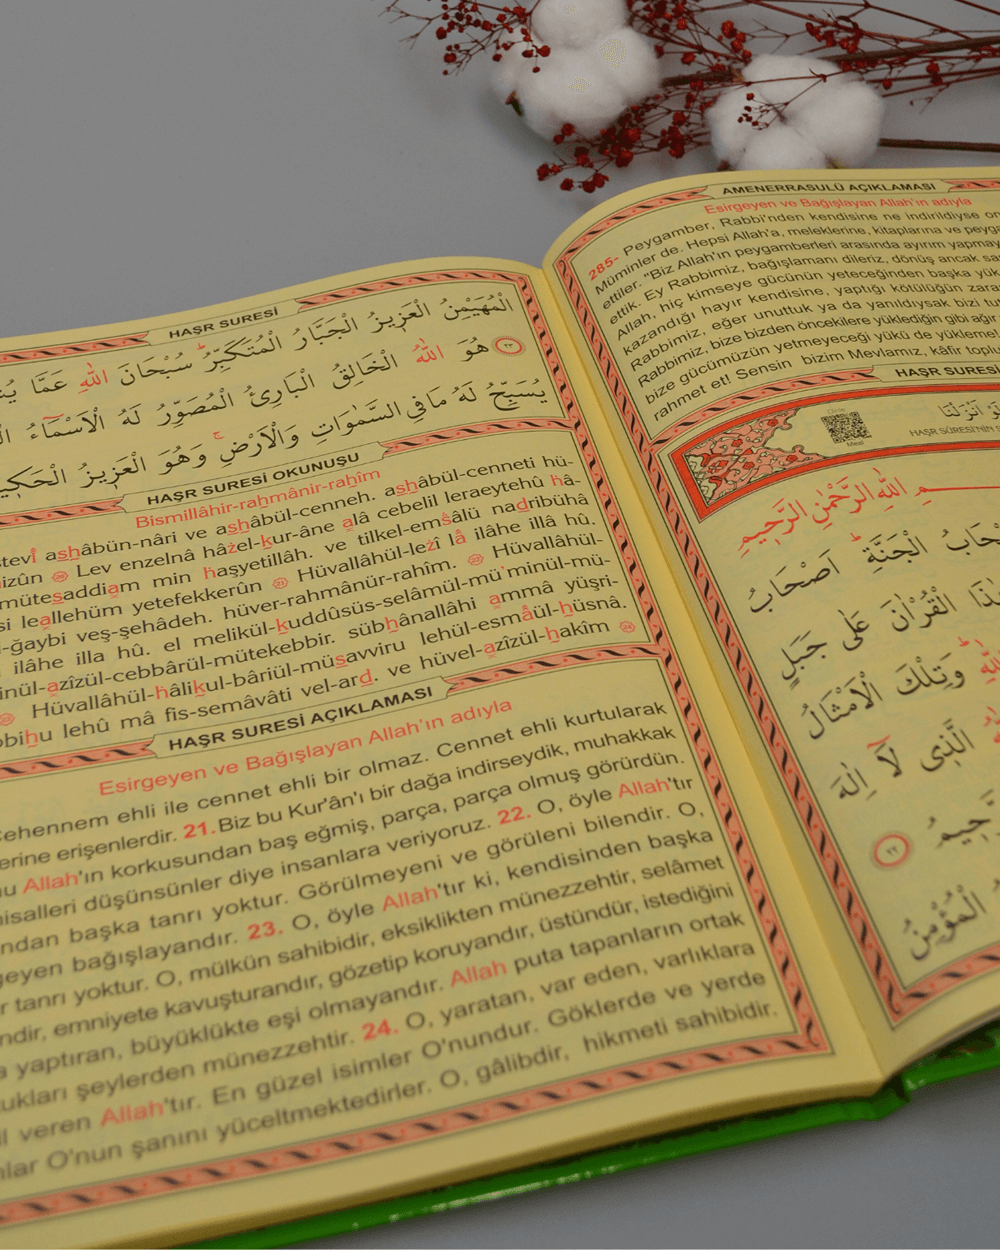 HAŞR SURESİ
الْمُهَيْمِنُ الْعَزِيزُ الْجَبَّارُ الْمُتَكَبِّرُ سُبْحَانَ اللّٰهِ عَمَّا
هُوَ اللّٰهُ الْخَالِقُ الْبَارِئُ الْمُصَوِّرُ لَهُ الْاَسْمَٓاءُ
يُسَبِّحُ لَهُ مَا فِي السَّمٰوَاتِ وَالْاَرْضِۚ وَهُوَ الْعَزِيزُ الْحَكِيمُ
HAŞR SURESİ OKUNUŞU
Bismillâhir-rahmânir-rahîm
ashâbün-nâri ve ashâbül-cenneh. ashâbül-cenneti hü-
Lev enzelnâ hâzel-kur-âne alâ cebelil leraeytehû hâ-
mütesaddiam min haşyetillâh. ve tilkel-emsâlü nadribühâ
leallehüm yetefekkerûn 21 Hüvallâhül-lezî lâ ilâhe illâ hû.
-ğaybi veş-şehâdeh. hüver-rahmânür-rahîm. 22 Hüvallâhül-
ilâhe illa hû. el melikül-kuddûsüs-selâmül-mü'minül-mü-
-azîzül-cebbârül-mütekebbir. sübhânallâhi ammâ yüşri-
23 Hüvallâhül-hâlikul-bâriül-müsavviru lehül-esmâül-hüsnâ.
lehû mâ fis-semâvâti vel-ard. ve hüvel-azîzül-hakîm 24
HAŞR SURESİ AÇIKLAMASI
Esirgeyen ve Bağışlayan Allah'ın adıyla
Cehennem ehli ile cennet ehli bir olmaz. Cennet ehli kurtularak
erişenlerdir. 21. Biz bu Kur'ân'ı bir dağa indirseydik, muhakkak
Allah'ın korkusundan baş eğmiş, parça, parça olmuş görürdün.
misalleri düşünsünler diye insanlara veriyoruz. 22. O, öyle Allah'tır
başka tanrı yoktur. Görülmeyeni ve görüleni bilendir. O,
bağışlayandır. 23. O, öyle Allah'tır ki, kendisinden başka
tanrı yoktur. O, mülkün sahibidir, eksiklikten münezzehtir, selâmet
emniyete kavuşturandır, gözetip koruyandır, üstündür, istediğini
yaptıran, büyüklükte eşi olmayandır. Allah puta tapanların ortak
şeylerden münezzehtir. 24. O, yaratan, var eden, varlıklara
veren Allah'tır. En güzel isimler O'nundur. Göklerde ve yerde
O'nun şanını yüceltmektedirler. O, gâlibdir, hikmeti sahibidir.
AMENERRASULÜ AÇIKLAMASI
Esirgeyen ve Bağışlayan Allah'ın adıyla
285- Peygamber, Rabbi'nden kendisine ne indirildiyse
Müminler de. Hepsi Allah'a, meleklerine, kitaplarına ve
ettiler. "Biz Allah'ın peygamberleri arasında ayırım
ettik. Ey Rabbimiz, bağışlamanı dileriz, dönüş ancak
Allah, hiç kimseye gücünün yeteceğinden başka yük
kazandığı hayır kendisine, yaptığı kötülüğün
Rabbimiz, eğer unuttuk ya da yanıldıysak bizi
Rabbimiz, bize bizden öncekilere yüklediğin gibi ağır
bize gücümüzün yetmeyeceği yükü de yükleme!
rahmet et! Sensin bizim Mevlamız, kâfir
HAŞR SURESİ
Meal
HAŞR SÛRESİ'NİN
بِسْمِ اللّٰهِ الرَّحْمٰنِ الرَّحِيمِ
الْجَنَّةِۜ اَصْحَابُ
الْقُرْاٰنَ عَلٰى جَبَلٍ
وَتِلْكَ الْاَمْثَالُ
الَّذِي لَٓا اِلٰهَ
٢٢
الْمُؤْمِنُ